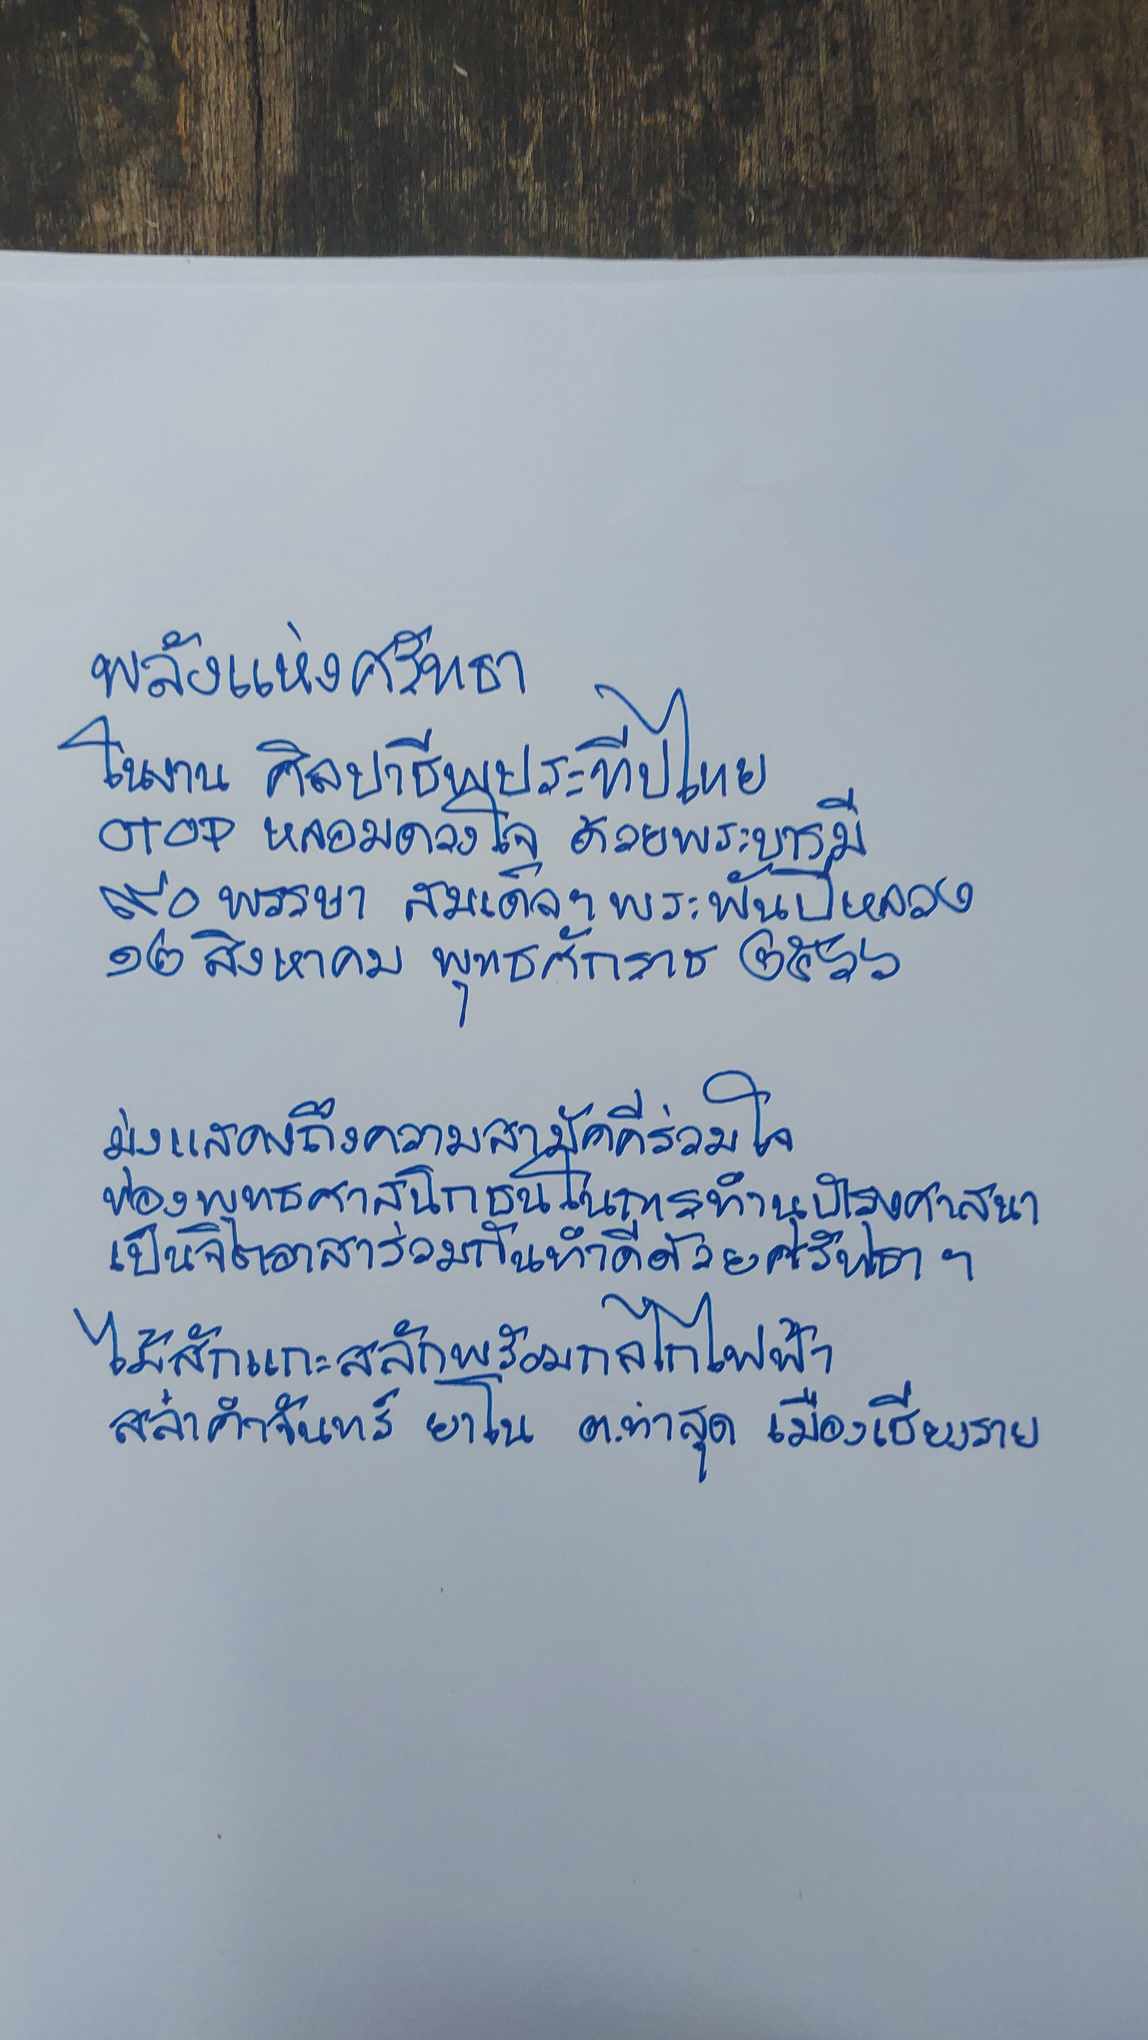 พลังแห่งศรัทธา
ในงาน ศิลปาชีพประทีปไทย
OTOP หลอมดวงใจ ด้วยพระบารมี
๙๐ พรรษา สมเด็จฯ พระพันปีหลวง
๑๒ สิงหาคม พุทธศักราช ๒๕๖๖
มุ่งแสดงถึงความสามัคคีร่วมใจ
ของพุทธศาสนิกชนในการทำนุบำรุงศาสนา
เป็นจิตอาสาร่วมกันทำดีด้วยศรัทธา ฯ
ไม้สักแกะสลักพร้อมกลไกไฟฟ้า
สล่าคำจันทร์ ยาโน ต.ท่าสุด เมืองเชียงราย